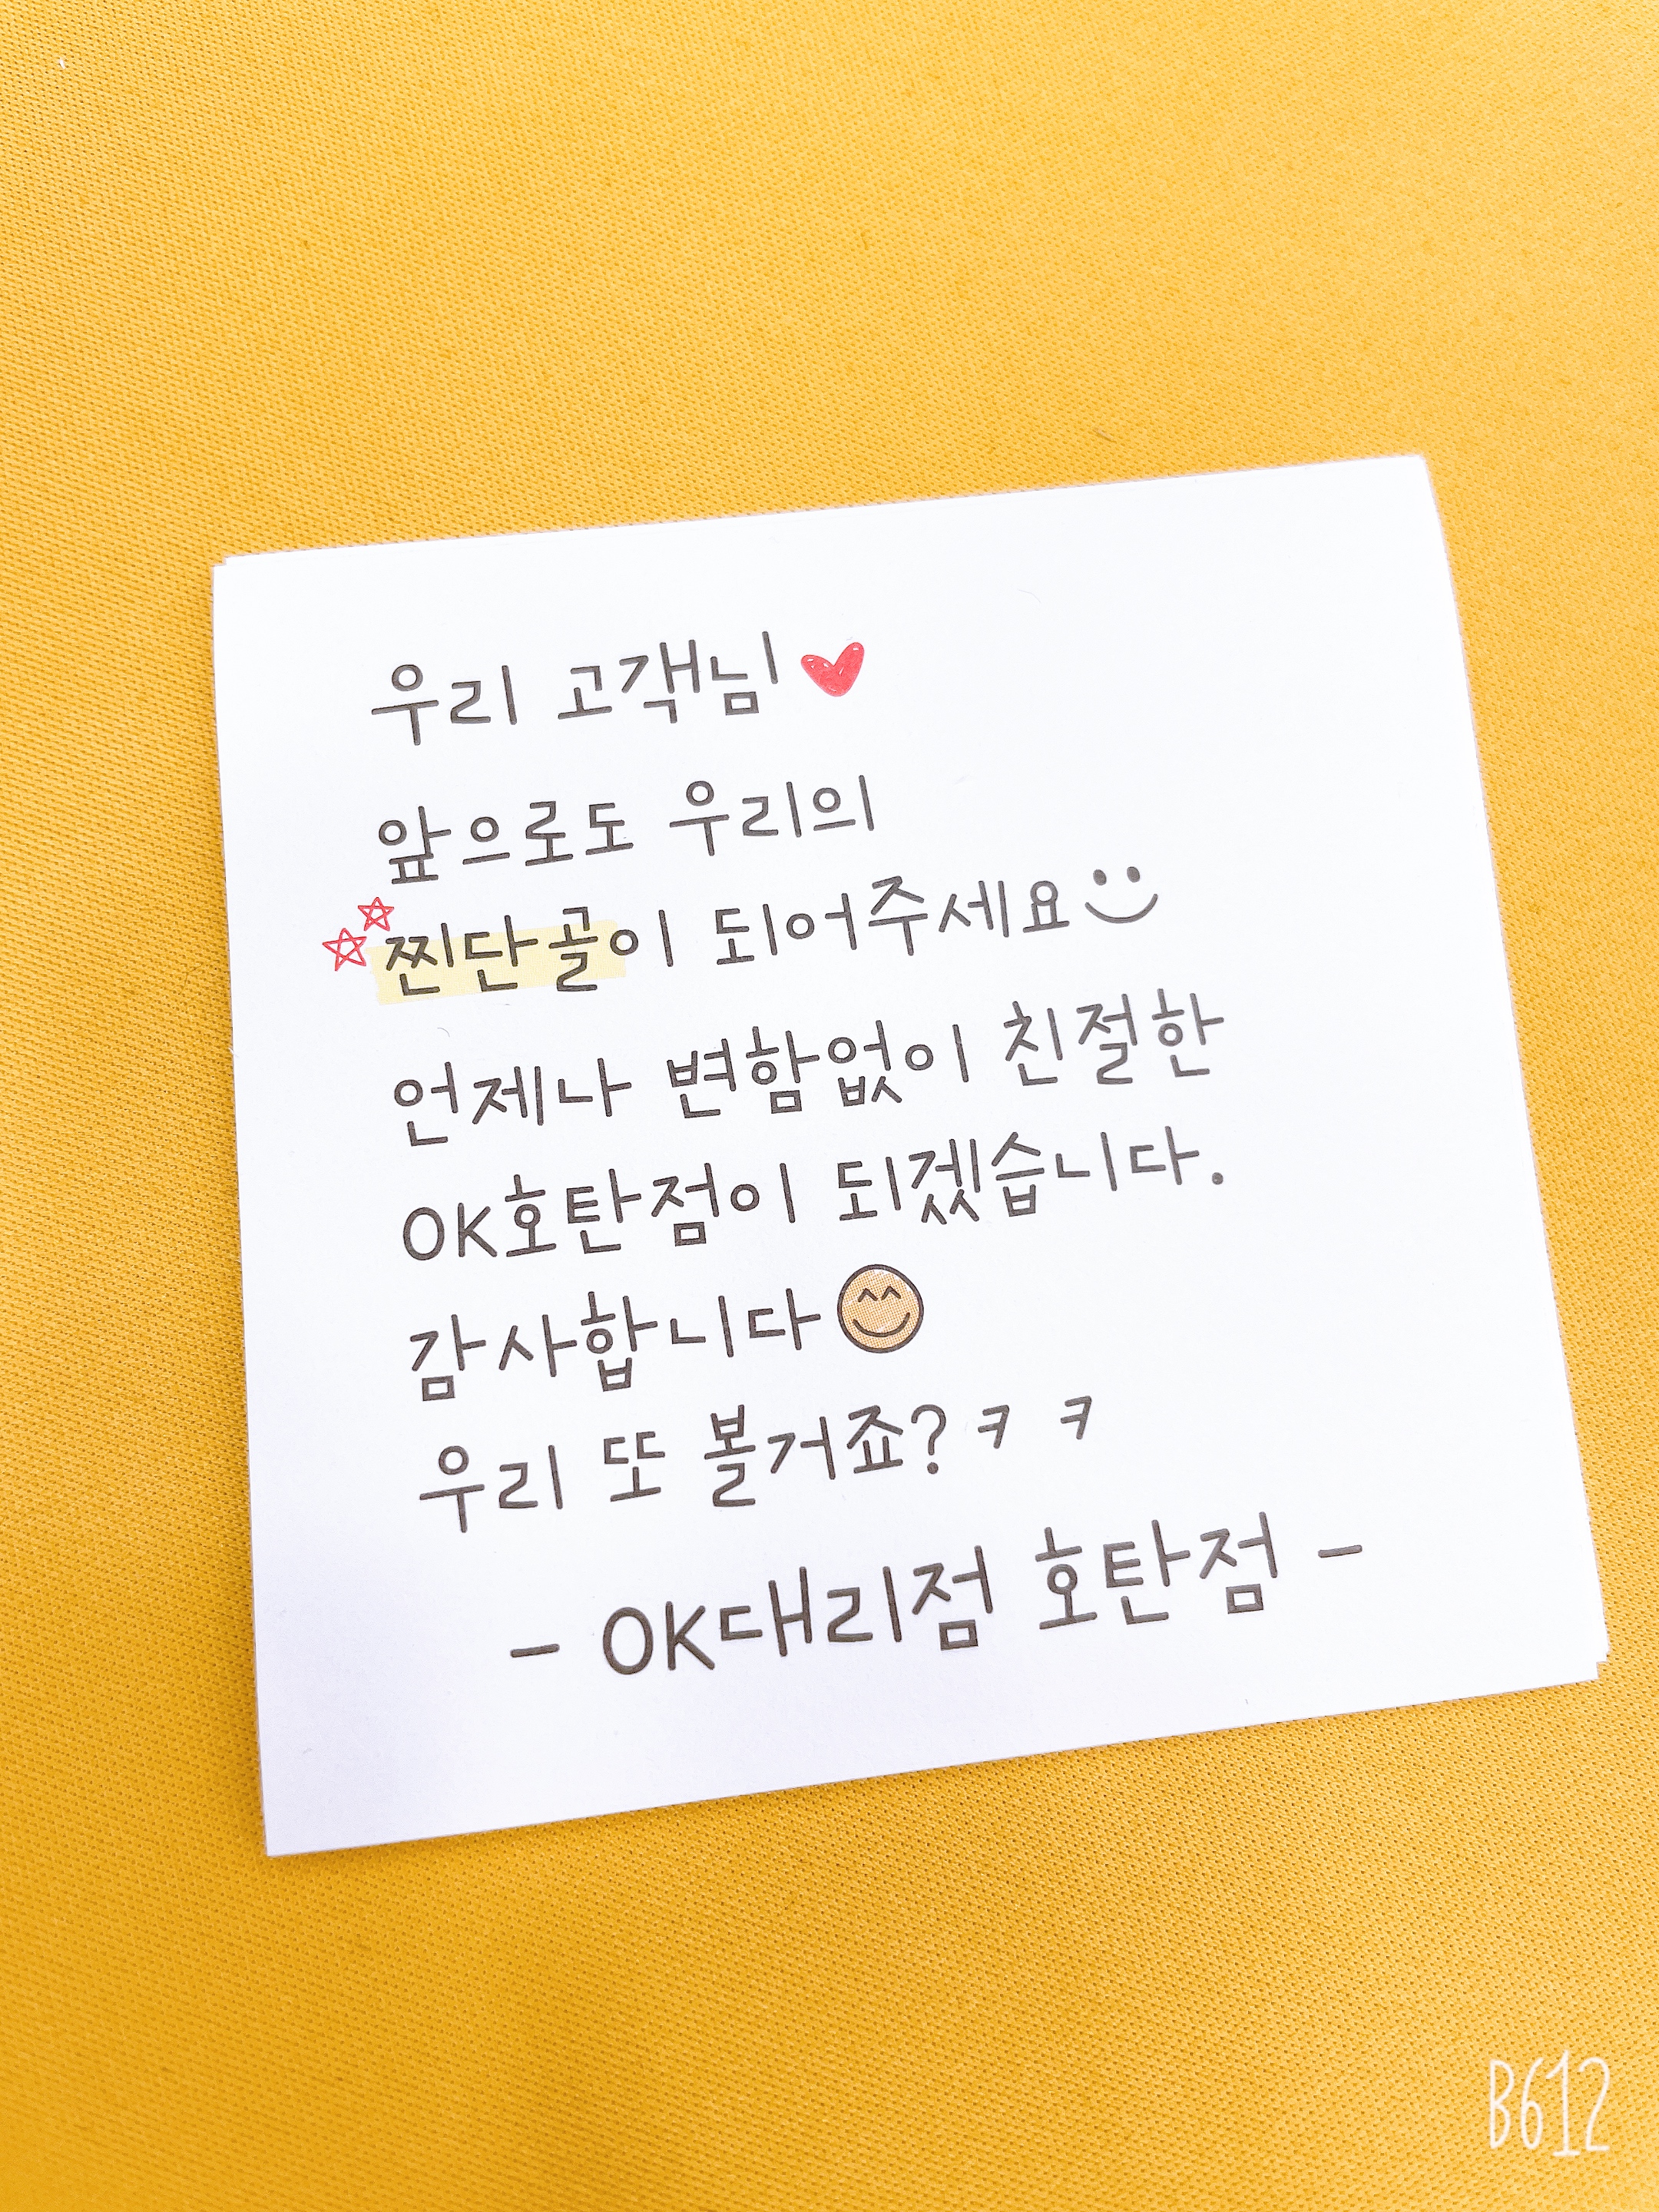 우리 고객님
앞으로도 우리의
찐단골이 되어주세요
언제나 변함없이 친절한
OK호탄점이 되겠습니다.
감사합니다
우리 또 볼거죠?ㅋㅋ
- OK대리점 호탄점 -
B612